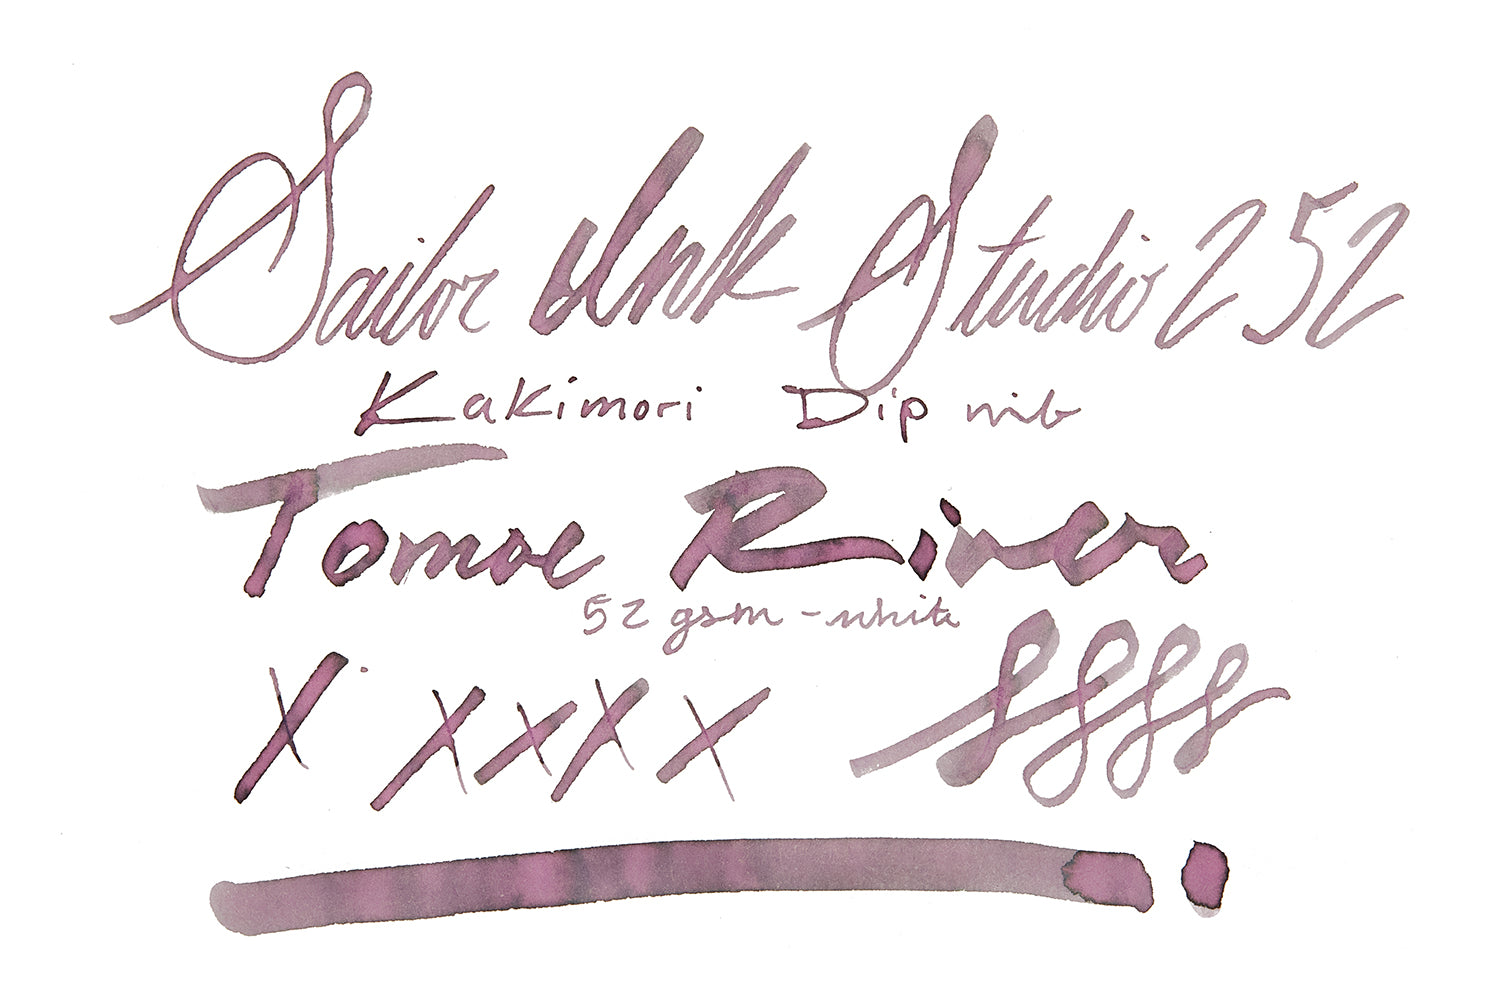 Sailor Ink Studio 252
Kakimori Dip nib
Tomoe River
52 gsm - white
X X X X X